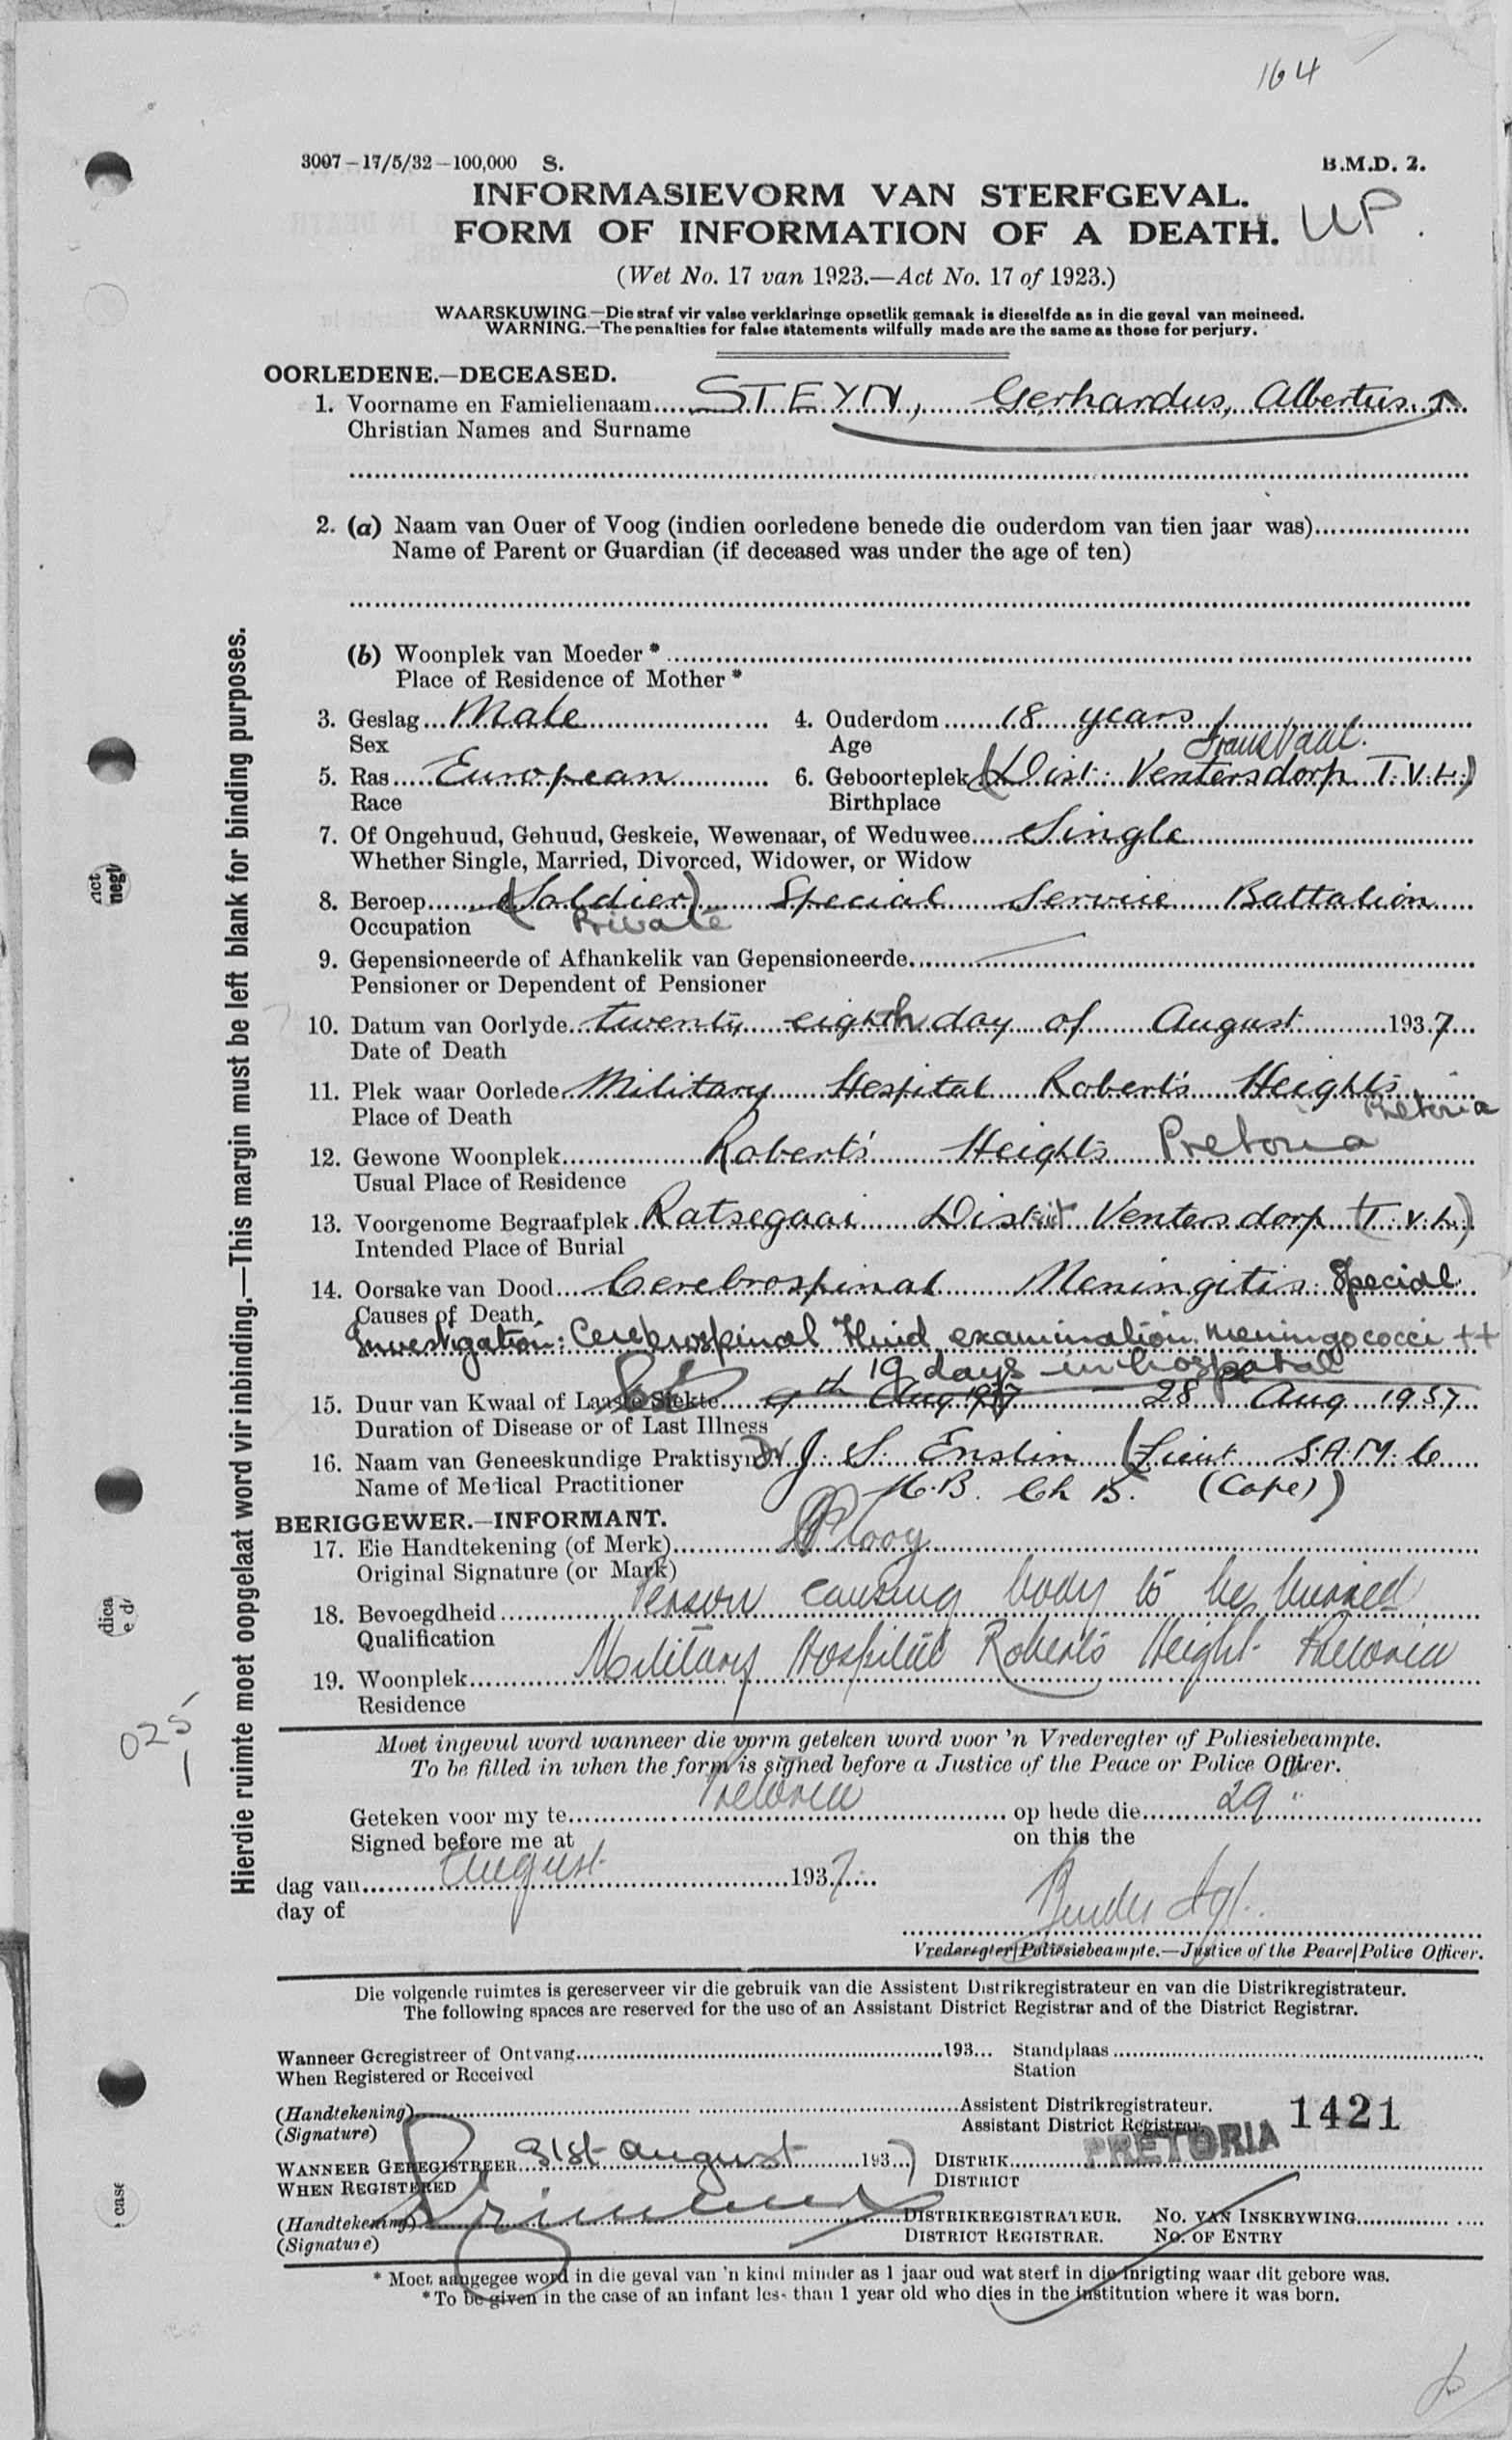 164
3007–17/5/32–100,000 S.
B.M.D. 2.
INFORMASIEVORM VAN STERFGEVAL.
FORM OF INFORMATION OF A DEATH.
UP.
(Wet No. 17 van 1923.—Act No. 17 of 1923.)
WAARSKUWING.—Die straf vir valse verklaringe opsetlik gemaak is dieselfde as in die geval van meineed.
WARNING.—The penalties for false statements wilfully made are the same as those for perjury.
OORLEDENE.—DECEASED.
1. Voorname en Famielienaam STEYN, Gerhardus, Albertus.
Christian Names and Surname
2. (a) Naam van Ouer of Voog (indien oorledene benede die ouderdom van tien jaar was)
Name of Parent or Guardian (if deceased was under the age of ten)
(b) Woonplek van Moeder *
Place of Residence of Mother *
3. Geslag Male 4. Ouderdom 18 years
Sex Age
Transvaal.
5. Ras European 6. Geboorteplek (Dist. Ventersdorp T.V.L.)
Race Birthplace
7. Of Ongehuud, Gehuud, Geskeie, Wewenaar, of Weduwee Single
Whether Single, Married, Divorced, Widower, or Widow
8. Beroep (Soldier) Special Service Battalion
Occupation Private
9. Gepensioneerde of Afhankelik van Gepensioneerde
Pensioner or Dependent of Pensioner
10. Datum van Oorlyde twenty eighth day of August 1937
Date of Death
11. Plek waar Oorlede Military Hospital Robert's Heights Pretoria
Place of Death
12. Gewone Woonplek Robert's Heights Pretoria
Usual Place of Residence
13. Voorgenome Begraafplek Ratsegaai District Ventersdorp (T.V.L.)
Intended Place of Burial
14. Oorsake van Dood Cerebrospinal Meningitis. Special
Causes of Death
Investigation: Cerebrospinal Fluid examination meningococci ++
19 days in hospital
15. Duur van Kwaal of Laaste Siekte 9th Aug 1937 – 28 Aug 1937
Duration of Disease or of Last Illness
16. Naam van Geneeskundige Praktisyn Dr. J. S. Enslin (Lieut S.A.M.C
Name of Medical Practitioner M.B. Ch B. (Cape))
BERIGGEWER.—INFORMANT.
17. Eie Handtekening (of Merk) Plooy
Original Signature (or Mark)
18. Bevoegdheid Person causing body to be buried
Qualification
19. Woonplek Military Hospital Roberts Height Pretoria
Residence
Moet ingevul word wanneer die vorm geteken word voor 'n Vrederegter of Poliesiebeampte.
To be filled in when the form is signed before a Justice of the Peace or Police Officer.
Geteken voor my te Pretoria op hede die 29
Signed before me at on this the
dag van August 1937
day of
Vrederegter/Poliesiebeampte.—Justice of the Peace/Police Officer.
Die volgende ruimtes is gereserveer vir die gebruik van die Assistent Distrikregistrateur en van die Distrikregistrateur.
The following spaces are reserved for the use of an Assistant District Registrar and of the District Registrar.
Wanneer Geregistreer of Ontvang 193... Standplaas
When Registered or Received Station
(Handtekening) Assistent Distrikregistrateur.
(Signature) Assistant District Registrar.
1421
WANNEER GEREGISTREER 31st August 1937 DISTRIK PRETORIA
WHEN REGISTERED DISTRICT
(Handtekening) DISTRIKREGISTRATEUR. NO. VAN INSKRYWING
(Signature) DISTRICT REGISTRAR. NO. OF ENTRY
* Moet aangegee word in die geval van 'n kind minder as 1 jaar oud wat sterf in die inrigting waar dit gebore was.
* To be given in the case of an infant less than 1 year old who dies in the institution where it was born.
Hierdie ruimte moet oopgelaat word vir inbinding.—This margin must be left blank for binding purposes.
025